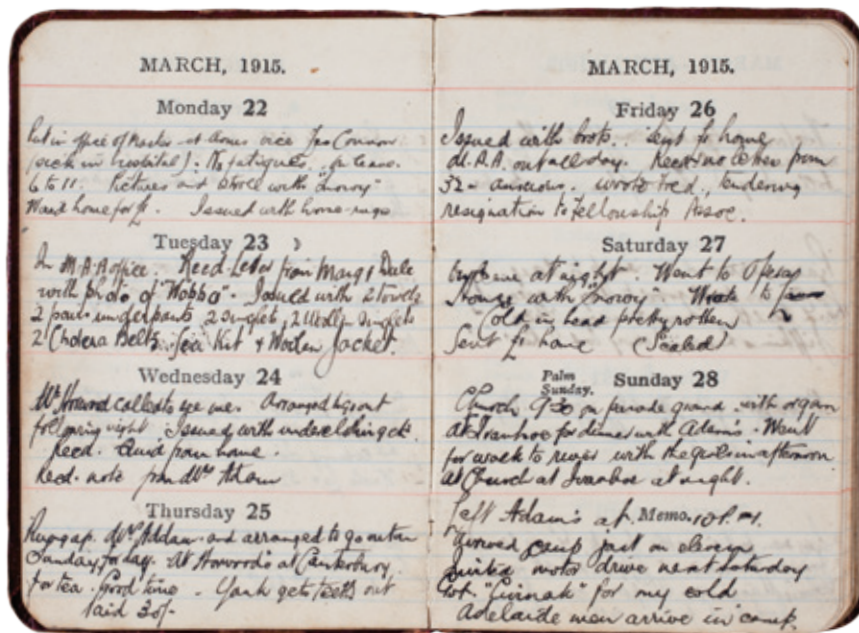 MARCH, 1915.
Monday 22
Put in office of Master at Arms vice Jas Connor
(sick in hospital). No fatigues. leave.
6 to 11. Pictures and stroll with "Snowy"
Issued with
Tuesday 23
In M.A.A office. Recd Letter from Marg & Dale
with photo of "Wobba". Issued with 2 towels
2 pair underpants 2 singlets, 2 Wolly singlets
2 Cholera Belts. Sea Kit & Woolen Jacket.
Wednesday 24
Mr Howard called to see me. Arranged to go out
following night. Issued with underclothing etc.
Recd. quid from home.
Recd. note from Mrs Adam
Thursday 25
Rung up Mrs Addam and arranged to go out on
Sunday for day. At Howard's at Canterbury
for tea. Good time. Yank gets teeth out
paid 30/-
MARCH, 1915.
Friday 26
Issued with boots. Sent home
M.A.A. out all day. Received no letter from
32 answered. wrote Fred, tendering
resignation to Fellowship Assoc.
Saturday 27
leave at night. Went to Opera
House with "Snowy" Wrote to
Cold in head pretty rotten
Sent home (Sealed)
Palm
Sunday. Sunday 28
Church 9.30 on parade ground with organ
at Ivanhoe for dinner with Adam's. Went
for walk to river with the girls in afternoon
at Church at Ivanhoe at night.
Memo.
Left Adam's at 10 P.M.
arrived camp just on eleven
invited motor drive next Saturday
Got for my cold
Adelaide men arrive in camp.